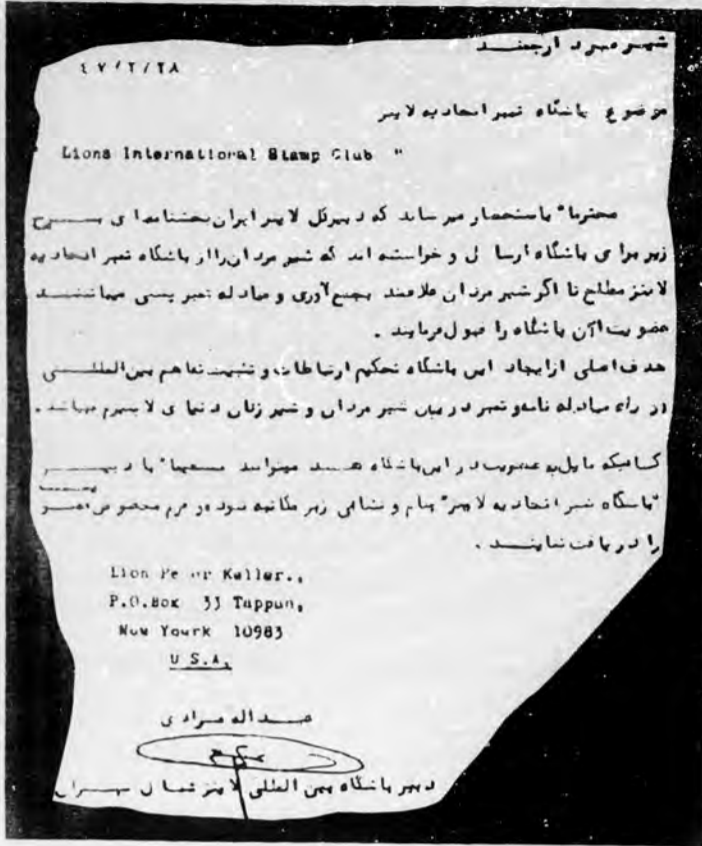 شیر مرد ارجمند
۴۷/۲/۲۸
موضوع باشگاه تمبر اتحادیه لاینز
" Lions International Stamp Club "
محترما" باستحضار میرساند که دبیرکل لاینز ایران بخشنامه ای بشرح
زیر برای باشگاه ارسال و خواسته اند که شیر مردان را از باشگاه تمبر اتحادیه
لاینز مطلع تا اگر شیر مردان علاقمند بجمع آوری و مبادله تمبر پستی میباشند
عضویت آن باشگاه را قبول فرمایند .
هدف اصلی از ایجاد این باشگاه تحکیم ارتباطات و تثبیت تفاهم بین المللی
از راه مبادله نامه و تمبر در بین شیر مردان و شیر زنان دنیای لاینیزم میباشد .
کسانیکه مایل به عضویت در این باشگاه هستند میتوانند مستقیما" با دبیر
"باشگاه تمبر اتحادیه لاینز" بنام و نشانی زیر مکاتبه نموده و فرم مخصوص
را دریافت نمایند .
Lion Pe er Keller.,
P.O.Box 33 Tappun,
New Yourk 10983
U S.A,
عبداله مرادی
دبیر باشگاه بین المللی لاینز شمال تهران